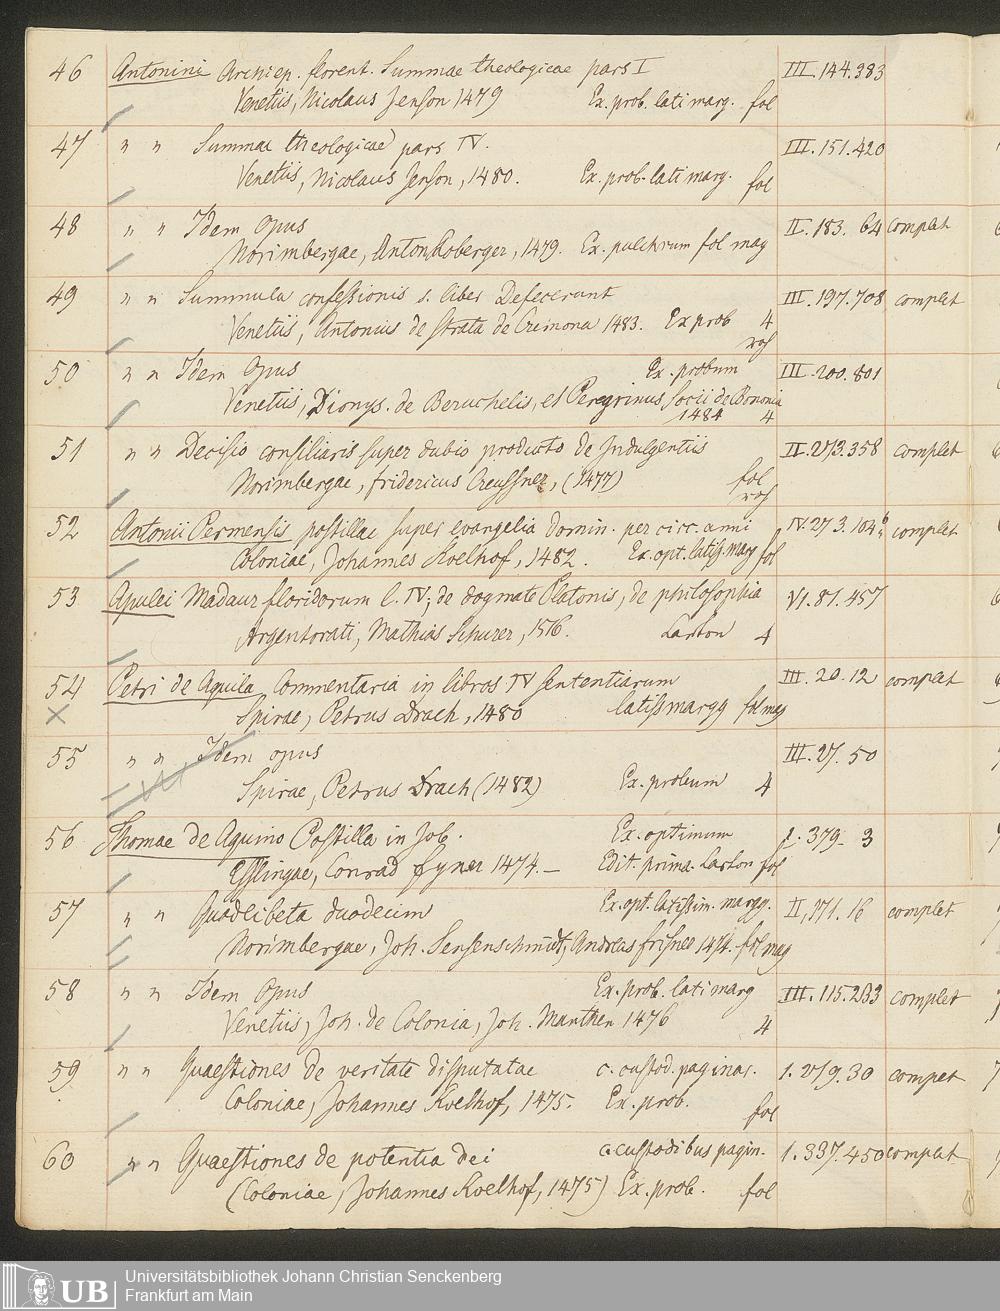 46 Antonini Archiep. florent. Summae theologicae pars I III.144.383
Venetiis, Nicolaus Jenson 1479 Ex. prob. lati marg. fol
47 " " Summae theologicae pars IV. III.151.420
Venetiis, Nicolaus Jenson, 1480. Ex. prob. lati marg. fol
48 " " Idem Opus II.183. 64 complet
Norimbergae, Anton Koberger, 1479. Ex. pulchrum fol mag
49 " " Summula confessionis s. liber Defecerunt III.197.708 complet
Venetiis, Antonius de strata de Cremona 1483. Ex prob 4
50 " " Idem Opus Ex. probum III.200.801
Venetiis, Dionys. de Beruchelis, et Peregrinus Socii de Bononia
1484 4
51 " " Decisio consiliaris super dubio producto de Indulgentiis II.273.358 complet
Norimbergae, fridericus Creussner, (1477) fol
52 Antonii Permensis postillae super evangelia domin. per circ. anni IV.273.104 b complet
Coloniae, Johannes Koelhof, 1482. Ex. opt. latiss. marg fol
53 Apulei Madaur floridorum l. IV; de dogmate Platonis, de philosophia VI.81.457
Argentorati, Mathias Schurer, 1516. 4
54 Petri de Aquila Commentaria in libros IV Sententiarum III.20.12 complet
Spirae, Petrus Drach, 1480 latiss margg fol mag
55 " " Idem opus III.27.50
Spirae, Petrus Drach (1482) Ex. probum 4
56 Thomae de Aquino Postilla in Job. Ex. optimum 1.379.3
Esslingae, Conrad fyner 1474.— Edit. prima. fol
57 " " Quodlibeta duodecim Ex. opt. latissim. margg. II,171.16 complet
Norimbergae, Joh. Sensenschmidt, Andreas frisner 1474. fol mag
58 " " Idem Opus Ex. prob. lati marg III.115.233 complet
Venetiis, Joh. de Colonia, Joh. Manthen 1476 4
59 " " Quaestiones de veritate disputatae c. custod. paginar. 1.219.30 compet
Coloniae, Johannes Koelhof, 1475. Ex. prob. fol
60 " " Quaestiones de potentia dei c. custodibus pagin. 1.337.450 complet
(Coloniae, Johannes Koelhof, 1475) Ex. prob. fol
UB Universitätsbibliothek Johann Christian Senckenberg
Frankfurt am Main